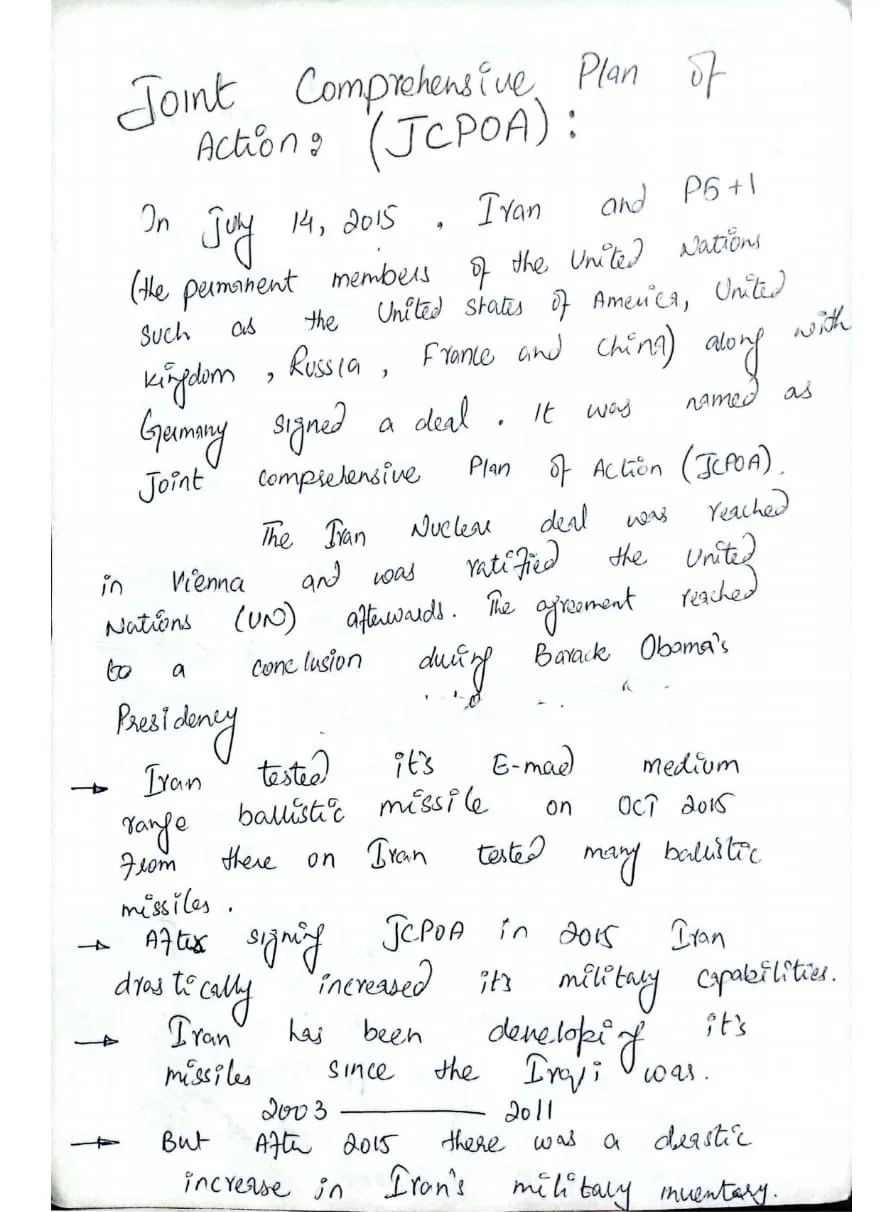 Joint Comprehensive Plan of
Action: (JCPOA):
In July 14, 2015, Iran and P5+1
(the permanent members of the United Nations
such as the United States of America, United
Kingdom, Russia, France and China) along with
Germany signed a deal. It was named as
Joint comprehensive Plan of Action (JCPOA).
The Iran Nuclear deal was reached
in Vienna and was ratified the United
Nations (UN) afterwards. The agreement reached
to a conclusion during Barack Obama's
Presidency
→ Iran tested it's E-mad medium
range ballistic missile on OCT 2015
From there on Iran tested many ballistic
missiles.
→ After signing JCPOA in 2015 Iran
drastically increased it's military capabilities.
→ Iran has been developing it's
missiles since the Iraqi was.
2003 — 2011
→ But After 2015 there was a drastic
increase in Iran's military inventary.